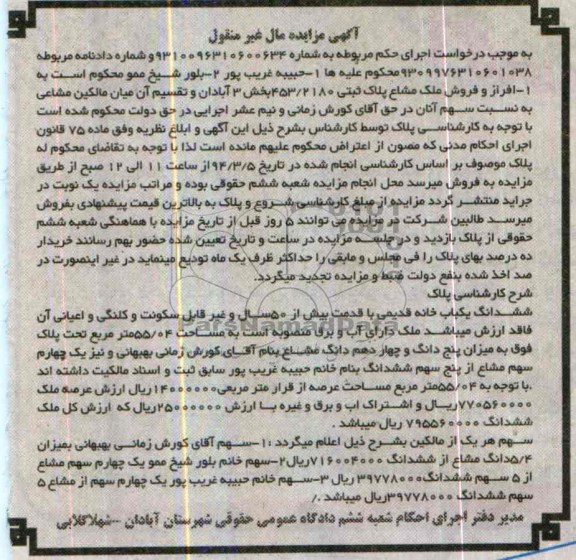 آگهی مزایده مال غیر منقول
به موجب درخواست اجرای حکم مربوطه به شماره ۹۳۱۰۰۹۶۳۱۰۶۰۰۶۳۴و شماره دادنامه مربوطه
۹۳۰۹۹۷۶۳۱۰۶۰۱۰۳۸محکوم علیه ها ۱-حبیبه غریب پور ۲-بلور شیخ ممو محکوم است به
۱-افراز و فروش ملک مشاع پلاک ثبتی ۴۵۳/۲۱۸۰بخش ۳ آبادان و تقسیم آن میان مالکین مشاعی
به نسبت سهم آنان در حق آقای کورش زمانی و نیم عشر اجرایی در حق دولت محکوم شده است
با توجه به کارشناسی پلاک توسط کارشناس بشرح ذیل این آگهی و ابلاغ نظریه وفق ماده ۷۵ قانون
اجرای احکام مدنی که مصون از اعتراض محکوم علیهم مانده است لذا با توجه به تقاضای محکوم له
پلاک موصوف بر اساس کارشناسی انجام شده در تاریخ ۹۴/۳/۵از ساعت ۱۱ الی ۱۲ صبح از طریق
مزایده به فروش میرسد محل انجام مزایده شعبه ششم حقوقی بوده و مراتب مزایده یک نوبت در
جراید منتشر گردد مزایده از مبلغ کارشناسی شروع و پلاک به بالاترین قیمت پیشنهادی بفروش
میرسد طالبین شرکت در مزایده می توانند ۵ روز قبل از تاریخ مزایده با هماهنگی شعبه ششم
حقوقی از پلاک بازدید و در جلسه مزایده در ساعت و تاریخ تعیین شده حضور بهم رسانند خریدار
ده درصد بهای پلاک را فی مجلس و مابقی را حداکثر ظرف یک ماه تودیع مینماید در غیر اینصورت در
صد اخذ شده بنفع دولت ضبط و مزایده تجدید میگردد.
شرح کارشناسی پلاک
ششدانگ یکباب خانه قدیمی با قدمت بیش از ۵۰سال و غیر قابل سکونت و کلنگی و اعیانی آن
فاقد ارزش میباشد ملک دارای آب و برق منصوبه است به مساحت ۵۵/۰۴متر مربع تحت پلاک
فوق به میزان پنج دانگ و چهار دهم دانگ مشاع بنام آقای کورش زمانی بهبهانی و نیز یک چهارم
سهم مشاع از پنج سهم ششدانگ بنام خانم حبیبه غریب پور سابق ثبت و اسناد مالکیت داشته اند
.با توجه به ۵۵/۰۴متر مربع مساحت عرصه از قرار متر مربعی۱۴۰۰۰۰۰۰ریال ارزش عرصه ملک
۷۷۰۵۶۰۰۰۰ریال و اشتراک اب و برق و غیره با ارزش ۲۵۰۰۰۰۰۰ریال که ارزش کل ملک
ششدانگ ۷۹۵۵۶۰۰۰۰ ریال میباشد .
سهم هر یک از مالکین بشرح ذیل اعلام میگردد :۱-سهم آقای کورش زمانی بهبهانی بمیزان
۵/۴دانگ مشاع از ششدانگ ۷۱۶۰۰۴۰۰۰ریال۲-سهم خانم بلور شیخ ممو یک چهارم سهم مشاع
از ۵ سهم ششدانگ۳۹۷۷۸۰۰۰ ریال ۳-سهم خانم حبیبه غریب پور یک چهارم سهم از مشاع ۵
سهم ششدانگ ۳۹۷۷۸۰۰۰ریال میباشد ./
مدیر دفتر اجرای احکام شعبه ششم دادگاه عمومی حقوقی شهرستان آبادان –شهلاگلابی